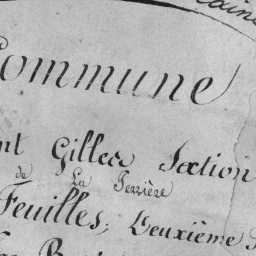 Commune
Gilles Section
de La Terrière
Feuilles, Deuxième